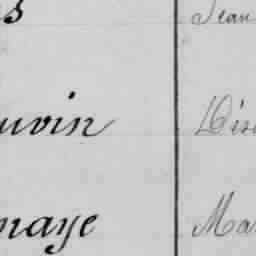 s Jean
uvin Dési
naye Mar